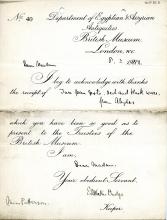 No. 40
Department of Egyptian & Assyrian
Antiquities
British Museum
London, W.C.
Dear Madam
I beg to acknowledge with thanks
the receipt of Two jars, red and black ware,
from Abydos
which you have been so good as to
present to the Trustees of the
British Museum.
I am,
Dear Madam,
Your obedient Servant,
E A Wallis Budge
Keeper